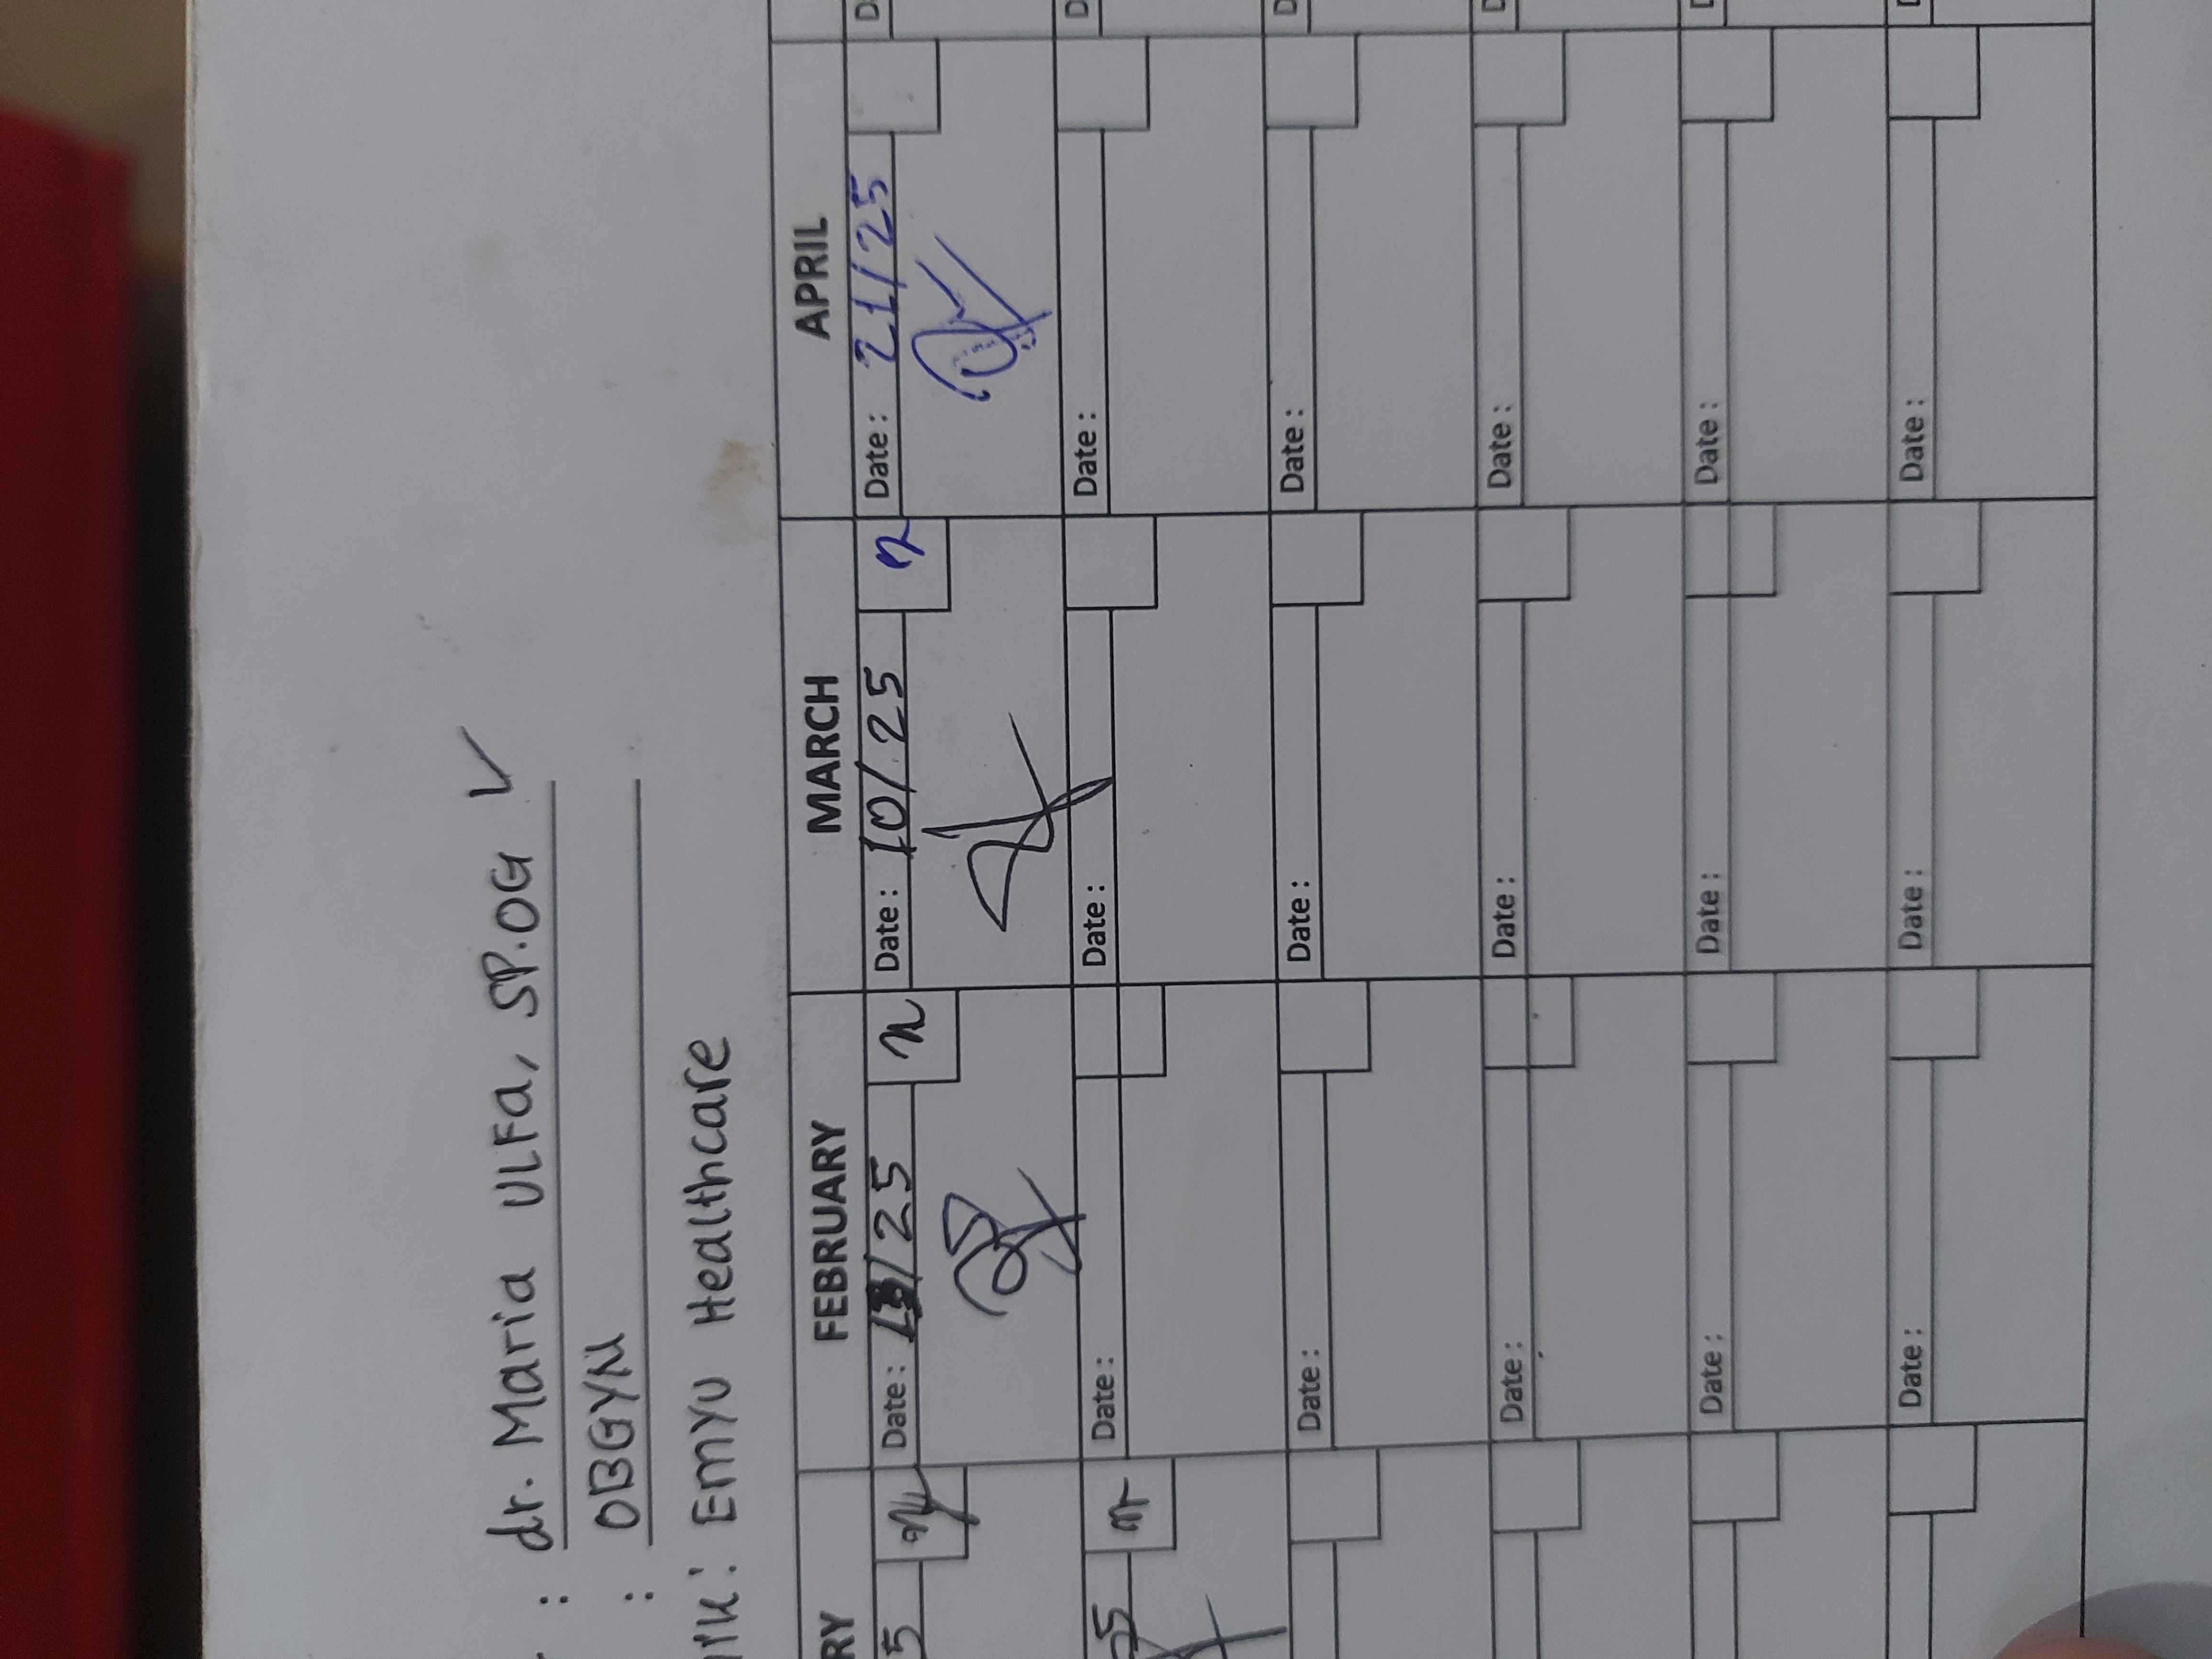 : dr. Maria ULFa, SP.OG ✓
: OBGYN
: EmYU Healthcare
RY FEBRUARY MARCH APRIL
5 Date: /25 Date: 10/25 Date: 21/25
25 Date: Date: Date:
Date: Date: Date:
Date: Date: Date:
Date: Date: Date:
Date: Date: Date: